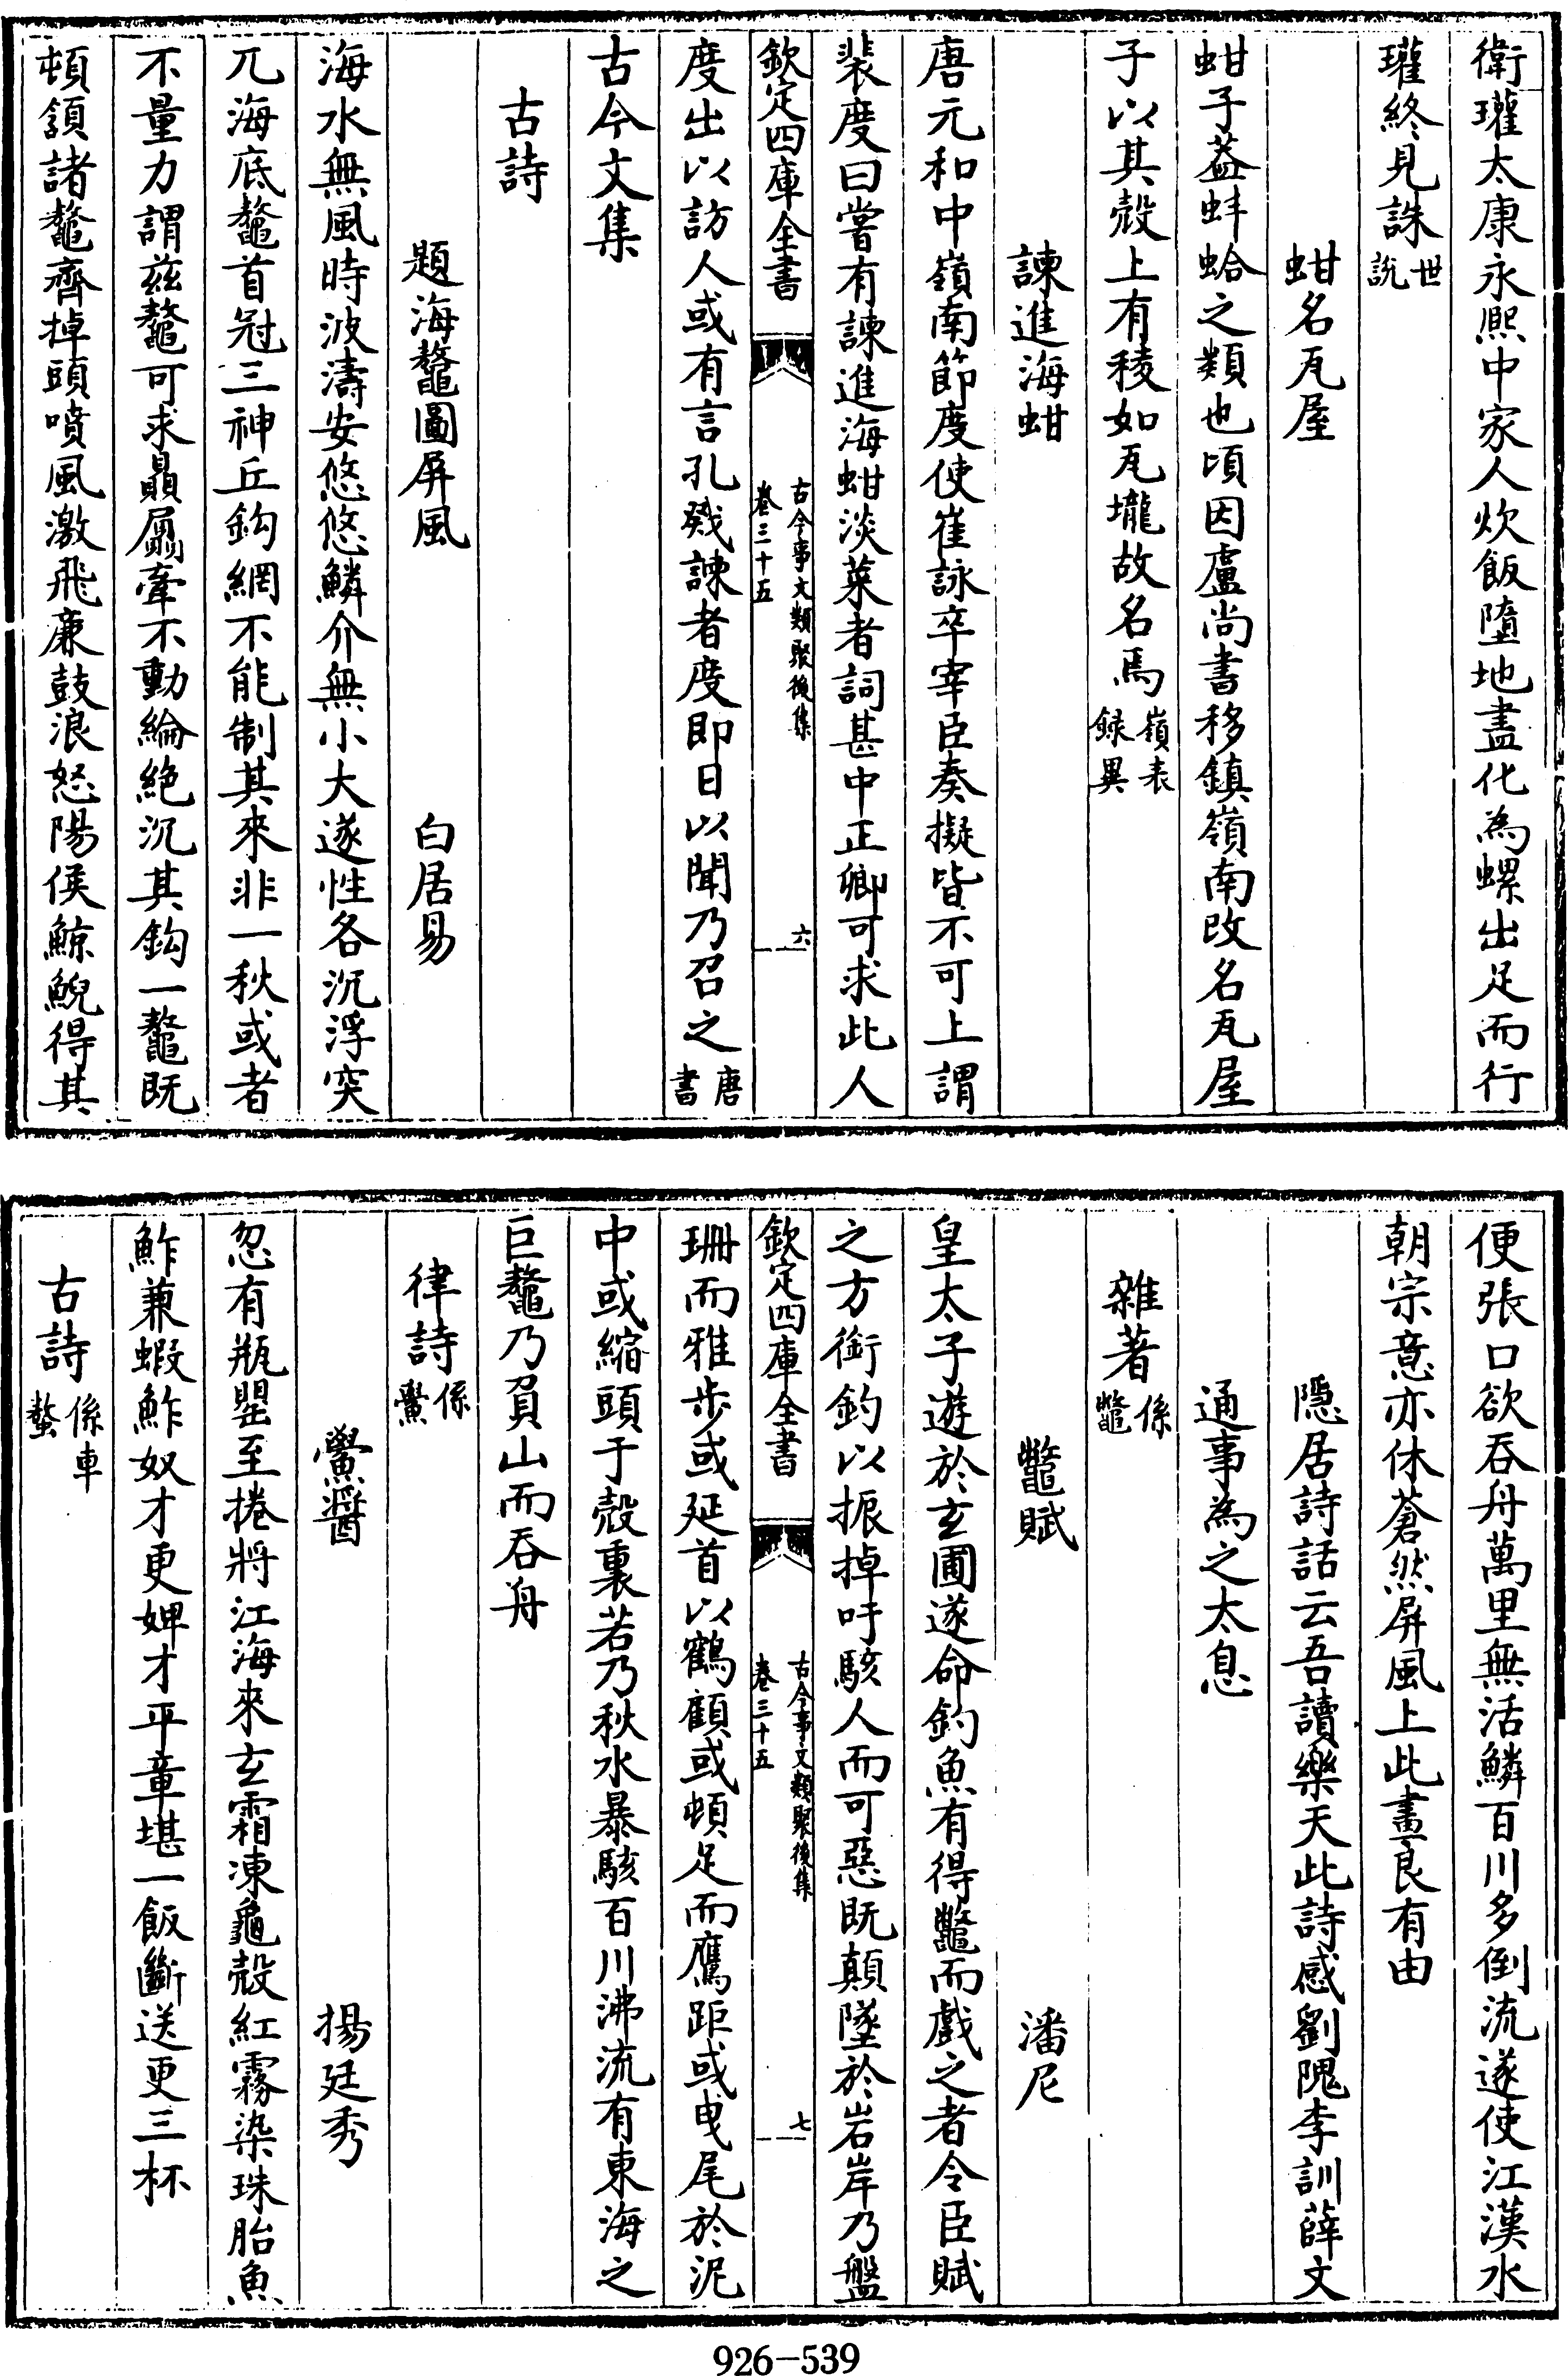 衛瓘太康永熙中家人炊飯墮地盡化為螺出足而行
瓘終見誅世說
蚶名瓦屋
蚶子葢蚌蛤之類也頃因盧尚書移鎮嶺南改名瓦屋
子以其殻上有稜如瓦壠故名焉嶺表録異
諫進海蚶
唐元和中嶺南節度使崔詠卒宰臣奏擬皆不可上謂
裴度曰嘗有諫進海蚶淡菜者詞甚中正卿可求此人
欽定四庫全書
古今事文類聚後集
卷三十五
六
度出以訪人或有言孔戣諫者度即日以聞乃召之唐書
古今文集
古詩
題海鼇圖屏風 白居易
海水無風時波濤安悠悠鱗介無小大遂性各沉浮突
兀海底鼇首冠三神丘鈎網不能制其來非一秋或者
不量力謂兹鼇可求贔屭牽不動綸絶沉其鈎一鼇既
頓頷諸鼇齊掉頭噴風激飛廉鼓浪怒陽侯鯨鯢得其
便張口欲吞舟萬里無活鱗百川多倒流遂使江漢水
朝宗意亦休蒼然屏風上此畫良有由
隠居詩話云吾讀樂天此詩感劉隗李訓薛文
通事為之太息
雜著係鼈
鼈賦 潘尼
皇太子遊於玄圃遂命釣魚有得鼈而戲之者令臣賦
之方銜釣以振掉吁駭人而可惡既顛墜於岩岸乃盤
欽定四庫全書
古今事文類聚後集
卷三十五
七
珊而雅步或延首以鶴顧或頓足而鷹距或曵尾於泥
中或縮頭于殻裏若乃秋水暴駭百川沸流有東海之
巨鼇乃負山而吞舟
律詩係鱟
鱟醬 揚廷秀
忽有瓶罌至捲將江海來玄霜凍龜殻紅霧染珠胎魚
鮓兼蝦鮓奴才更婢才平章堪一飯斷送更三杯
古詩係車螯
926-539